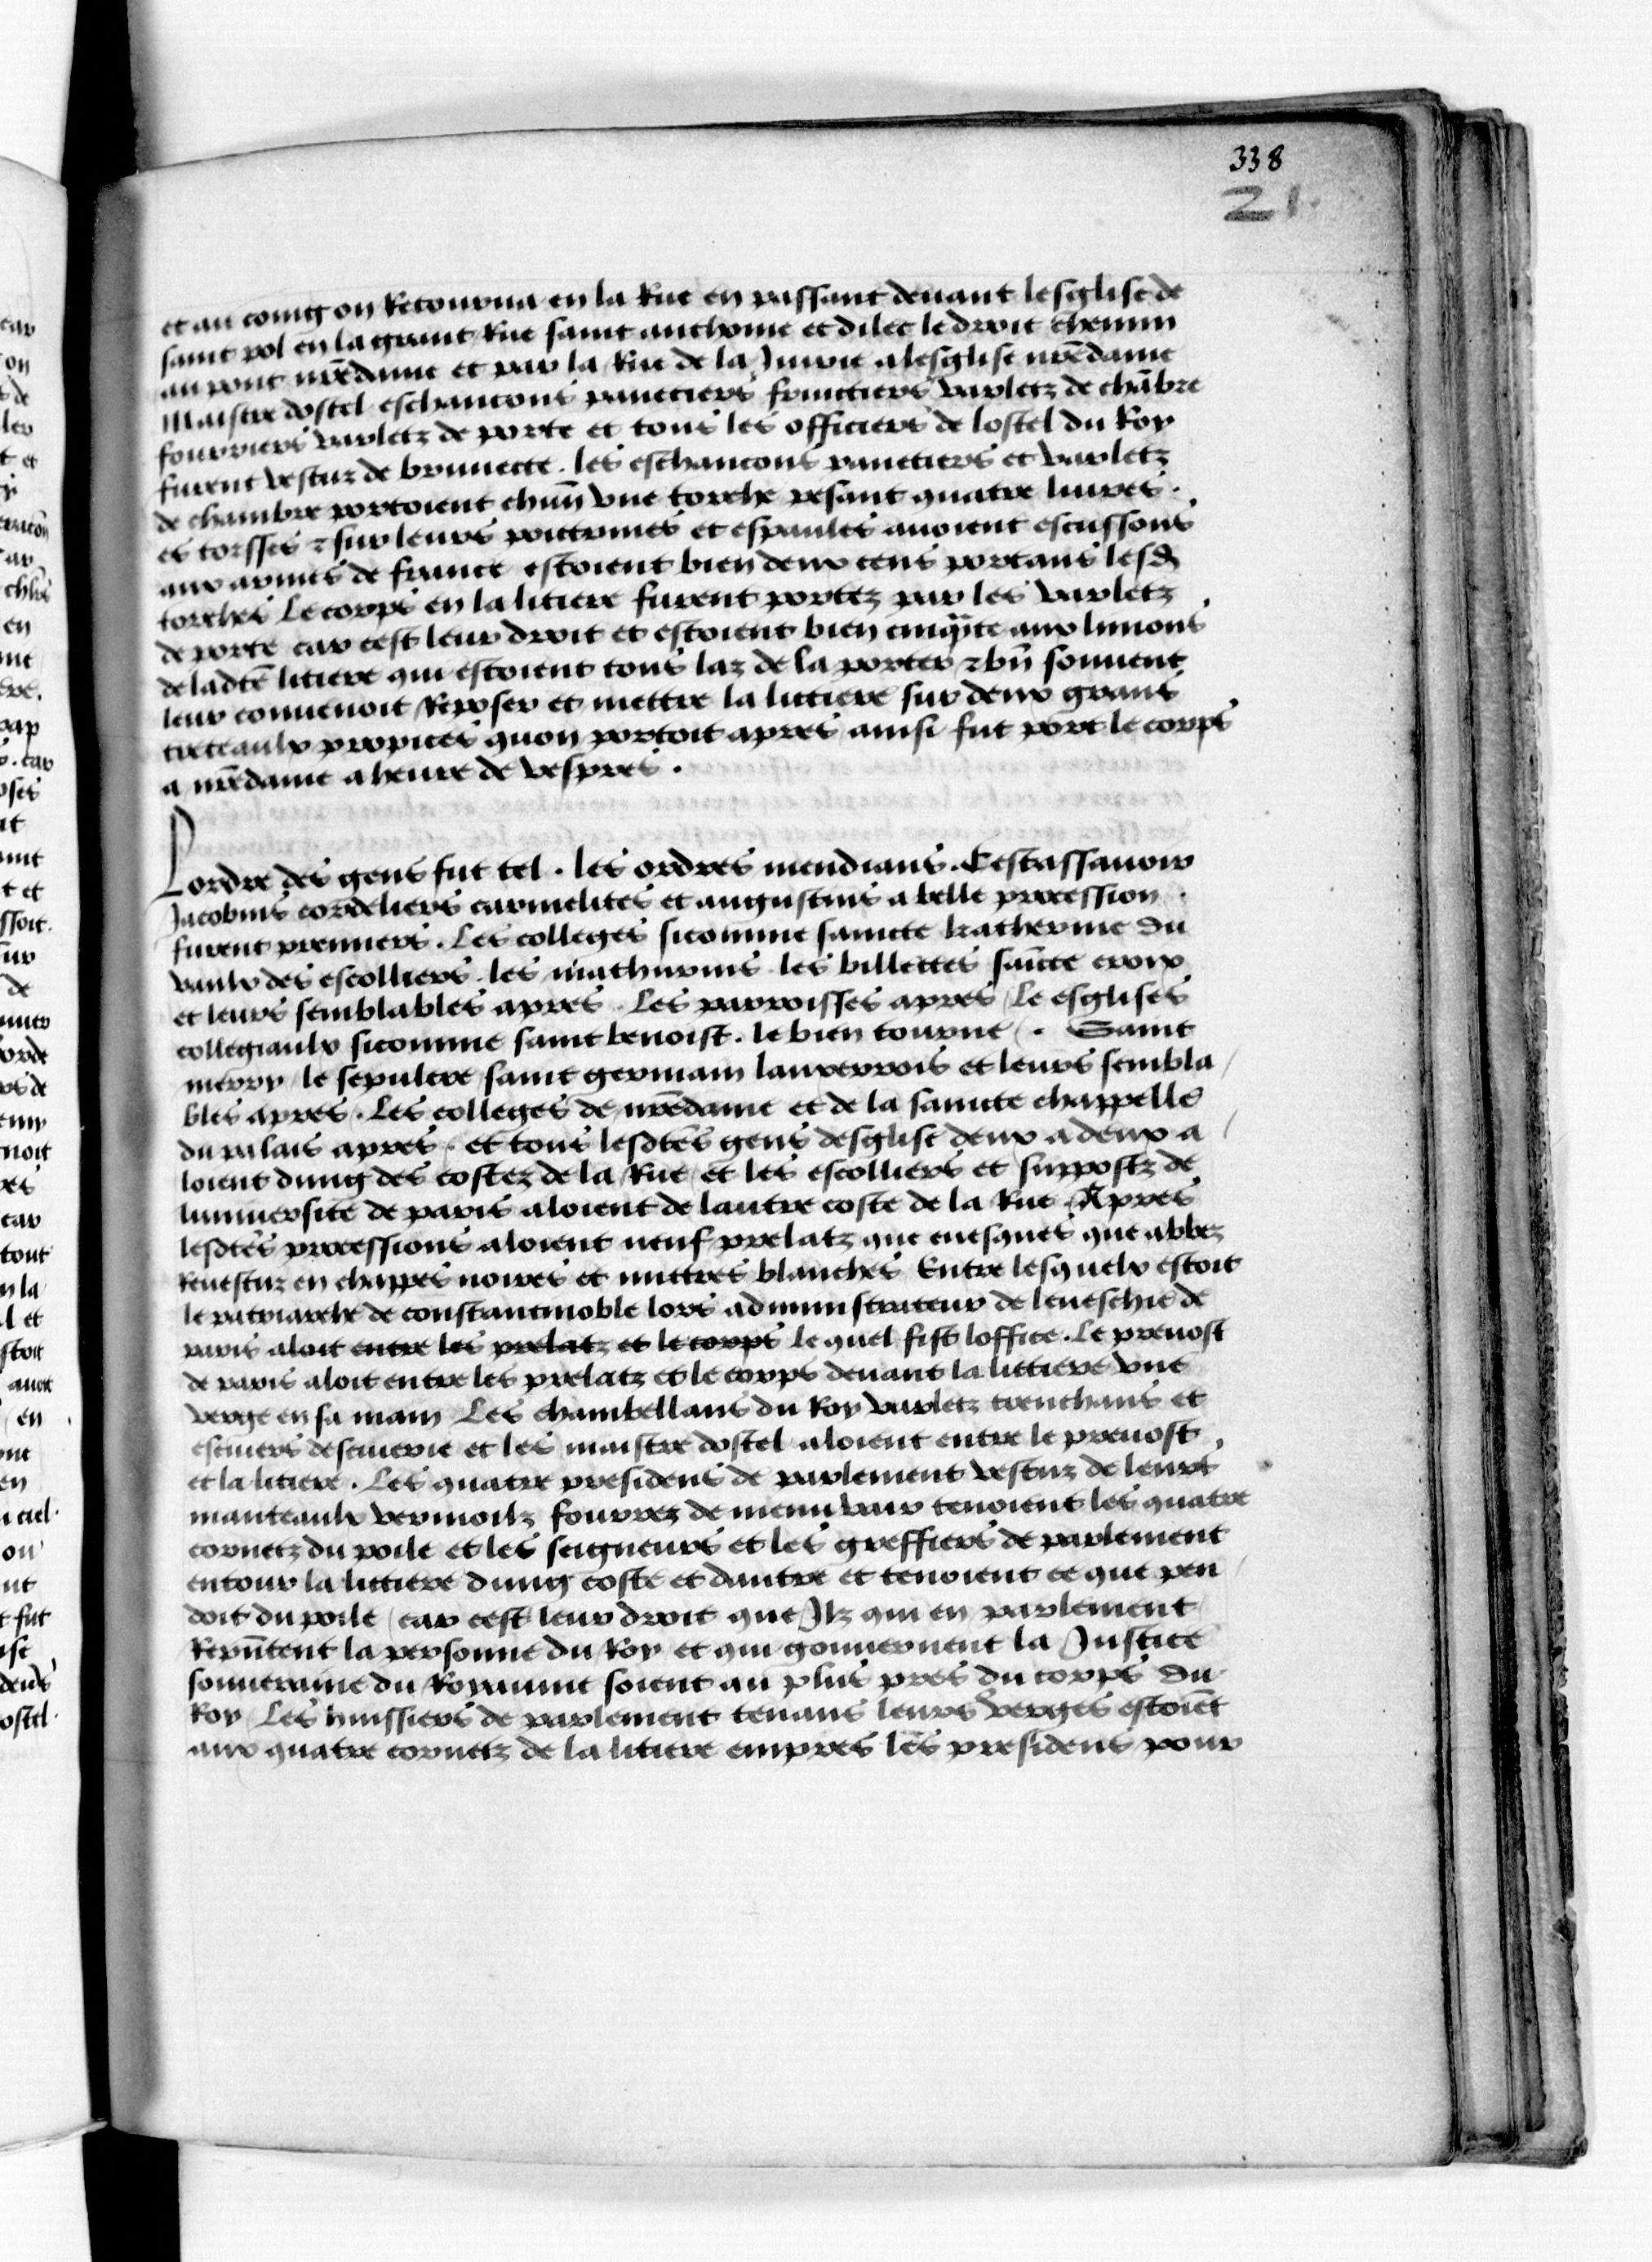 338
21.
et au coing on Retourna en la Rue en passant deuant lesglise de
saint pol en la grant Rue saint anthoine et dilec le droit chemin
au pont nrēdame et par la Rue de la Juirie a lesglise nrēdame
Maistre dostel eschancons panetiers fruictiers varletz de chābre
fourriers varletz de porte et tous les officiers de lostel du Roy
furent vestuz de brunecte . les eschancons panetiers et varletz
de chambre portoient chūn vne torche pesant quatre liures .
es torsses ⁊ sur leurs poictrines et espaules auoient escussons
aux armes de france estoient bien deux cens portans lesd
torches Le corps en la litiere furent portez par les varletz
de porte car cest leur droit et estoient bien cinqᵃte aux limons
de ladtē litiere qui estoient tous laz de la porter ⁊ bn̄ souuent
leur conuenoit Reposer et mettre la littiere sur deux grans
treteaulx propices quon portoit apres ainsi fut porte le corps
a nrēdame a heure de vespres .
Lordre des gens fut tel . les ordres mendians . Cestassauoir
Jacobins cordeliers carmelites et augustins a belle procession .
furent premiers . Les colleges sicomme saincte katherine du
vaulx des escolliers . les mathurins . les billettes sāīcte croix
et leurs semblables apres . Les parroisses apres / Le esglises
collegiaulx sicomme saint benoist . le bien tourne / . Saint
merry / le sepulcre / saint germain lauxerrois et leurs sembla /
bles apres . Les colleges de nrēdame et de la saincte chappelle
du palais apres . et tous lesdtēs gens desglise deux a deux a /
loient dung des costez de la Rue / et les escolliers et suppostz de
luniuersite de paris aloient de lautre coste de la Rue . Apres
lesdtēs processions aloient neuf prelatz que euesques que abbez
Reuestuz en chappes noires et mittres blanches Entre lesquelx estoit
le patriarche de constantinoble lors administrateur de leueschie de
paris aloit entre les prelatz et le corps lequel fist loffice . Le preuost
de paris aloit entre les prelatz et le corps deuant la littiere vne
verge en sa main Les chambellans du Roy varletz trenchans et
escuiers descuierie et les maistre dostel aloient entre le preuost
et la litiere . Les quatre presidens de parlement vestuz de leurs
manteaulx vermoilz fourrez de menu vair tenoient les quatre
cornetz du poile et les seigneurs et les greffiers de parlement
entour la littiere dung coste et dautre et tenoient ce que pen /
doit du poile / car cest leur droit que Jlz qui en parlement
Repn̄tent la personne du Roy et qui gouuernent la Justice
souueraine du Royaume soient au plus pres du corps du
Roy / Les huissiers de parlement tenans leurs verges estoiēt
aux quatre cornetz de la litiere empres les president pour